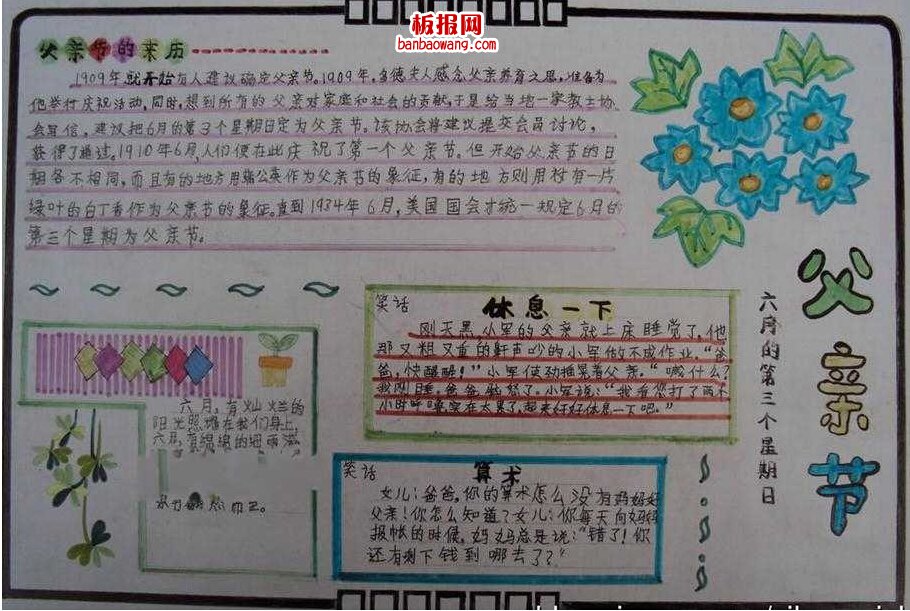 板报网
banbaowang.com
父亲节的来历
1909年就开始有人建议确定父亲节。1909年,多德夫人感念父亲养育之恩,准备为
他举行庆祝活动,同时,想到所有的父亲对家庭和社会的贡献,于是给当地一家教士协
会写信,建议把6月的第3个星期日定为父亲节。该协会将建议提交会员讨论,
获得了通过。1910年6月,人们便在此庆祝了第一个父亲节。但开始父亲节的日
期各不相同,而且有的地方用蒲公英作为父亲节的象征,有的地方则用衬有一片
绿叶的白丁香作为父亲节的象征。直到1934年6月,美国国会才统一规定6月的
第三个星期为父亲节。
父亲节
六月的第三个星期日
笑话
休息一下
刚天黑小军的父亲就上床睡觉了,他
那又粗又重的鼾声吵的小军做不成作业。“爸
爸,快醒醒!”小军使劲推晃着父亲。“喊什么?
我刚睡
爸爸恼怒了。小军说:“我看您打了两个
小时呼噜实在太累了,起来好好休息一下吧。”
六月,有灿烂的
阳光照
在我们身上,
六月,有绵绵的细雨滋
笑话
算术
女儿:爸爸,你的算术怎么没有妈妈好
父亲!你怎么知道?女儿:你每天向妈妈
报帐的时候,妈妈总是说:“错了!你
还有剩下钱到哪去了?”